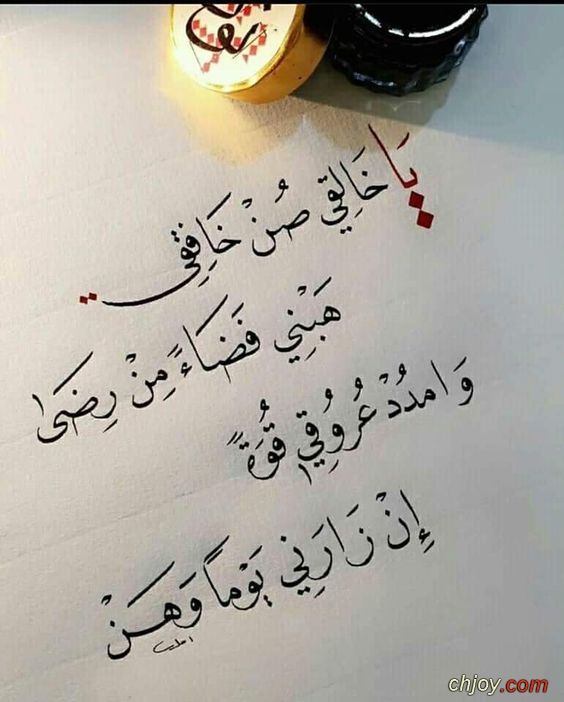 يَا خَالِقِي صُنْ خَافِقِي
هَبْنِي فَضَاءً مِنْ رِضَى
وَامدُدْ عُرُوقِي قُوَةً
إِنْ زَارَنِي يَوْماً وَهَنْ
chjoy.com